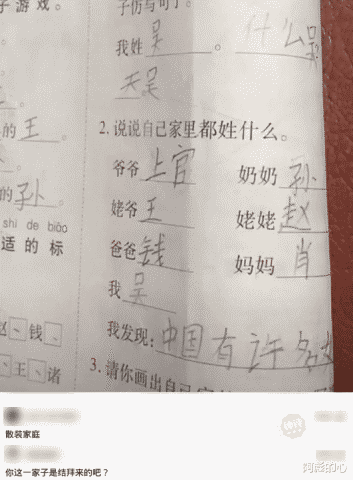 子游戏。
的王。
的孙。
shì de biāo
适的标
赵、钱、
王、诸
我姓吴。什么吴
夫吴
2. 说说自己家里都姓什么。
爷爷上官 奶奶孙
姥爷王 姥姥赵
爸爸钱 妈妈肖
我吴
我发现:中国有许多
3. 请你画出自己
散装家庭
你这一家子是结拜来的吧？
的心